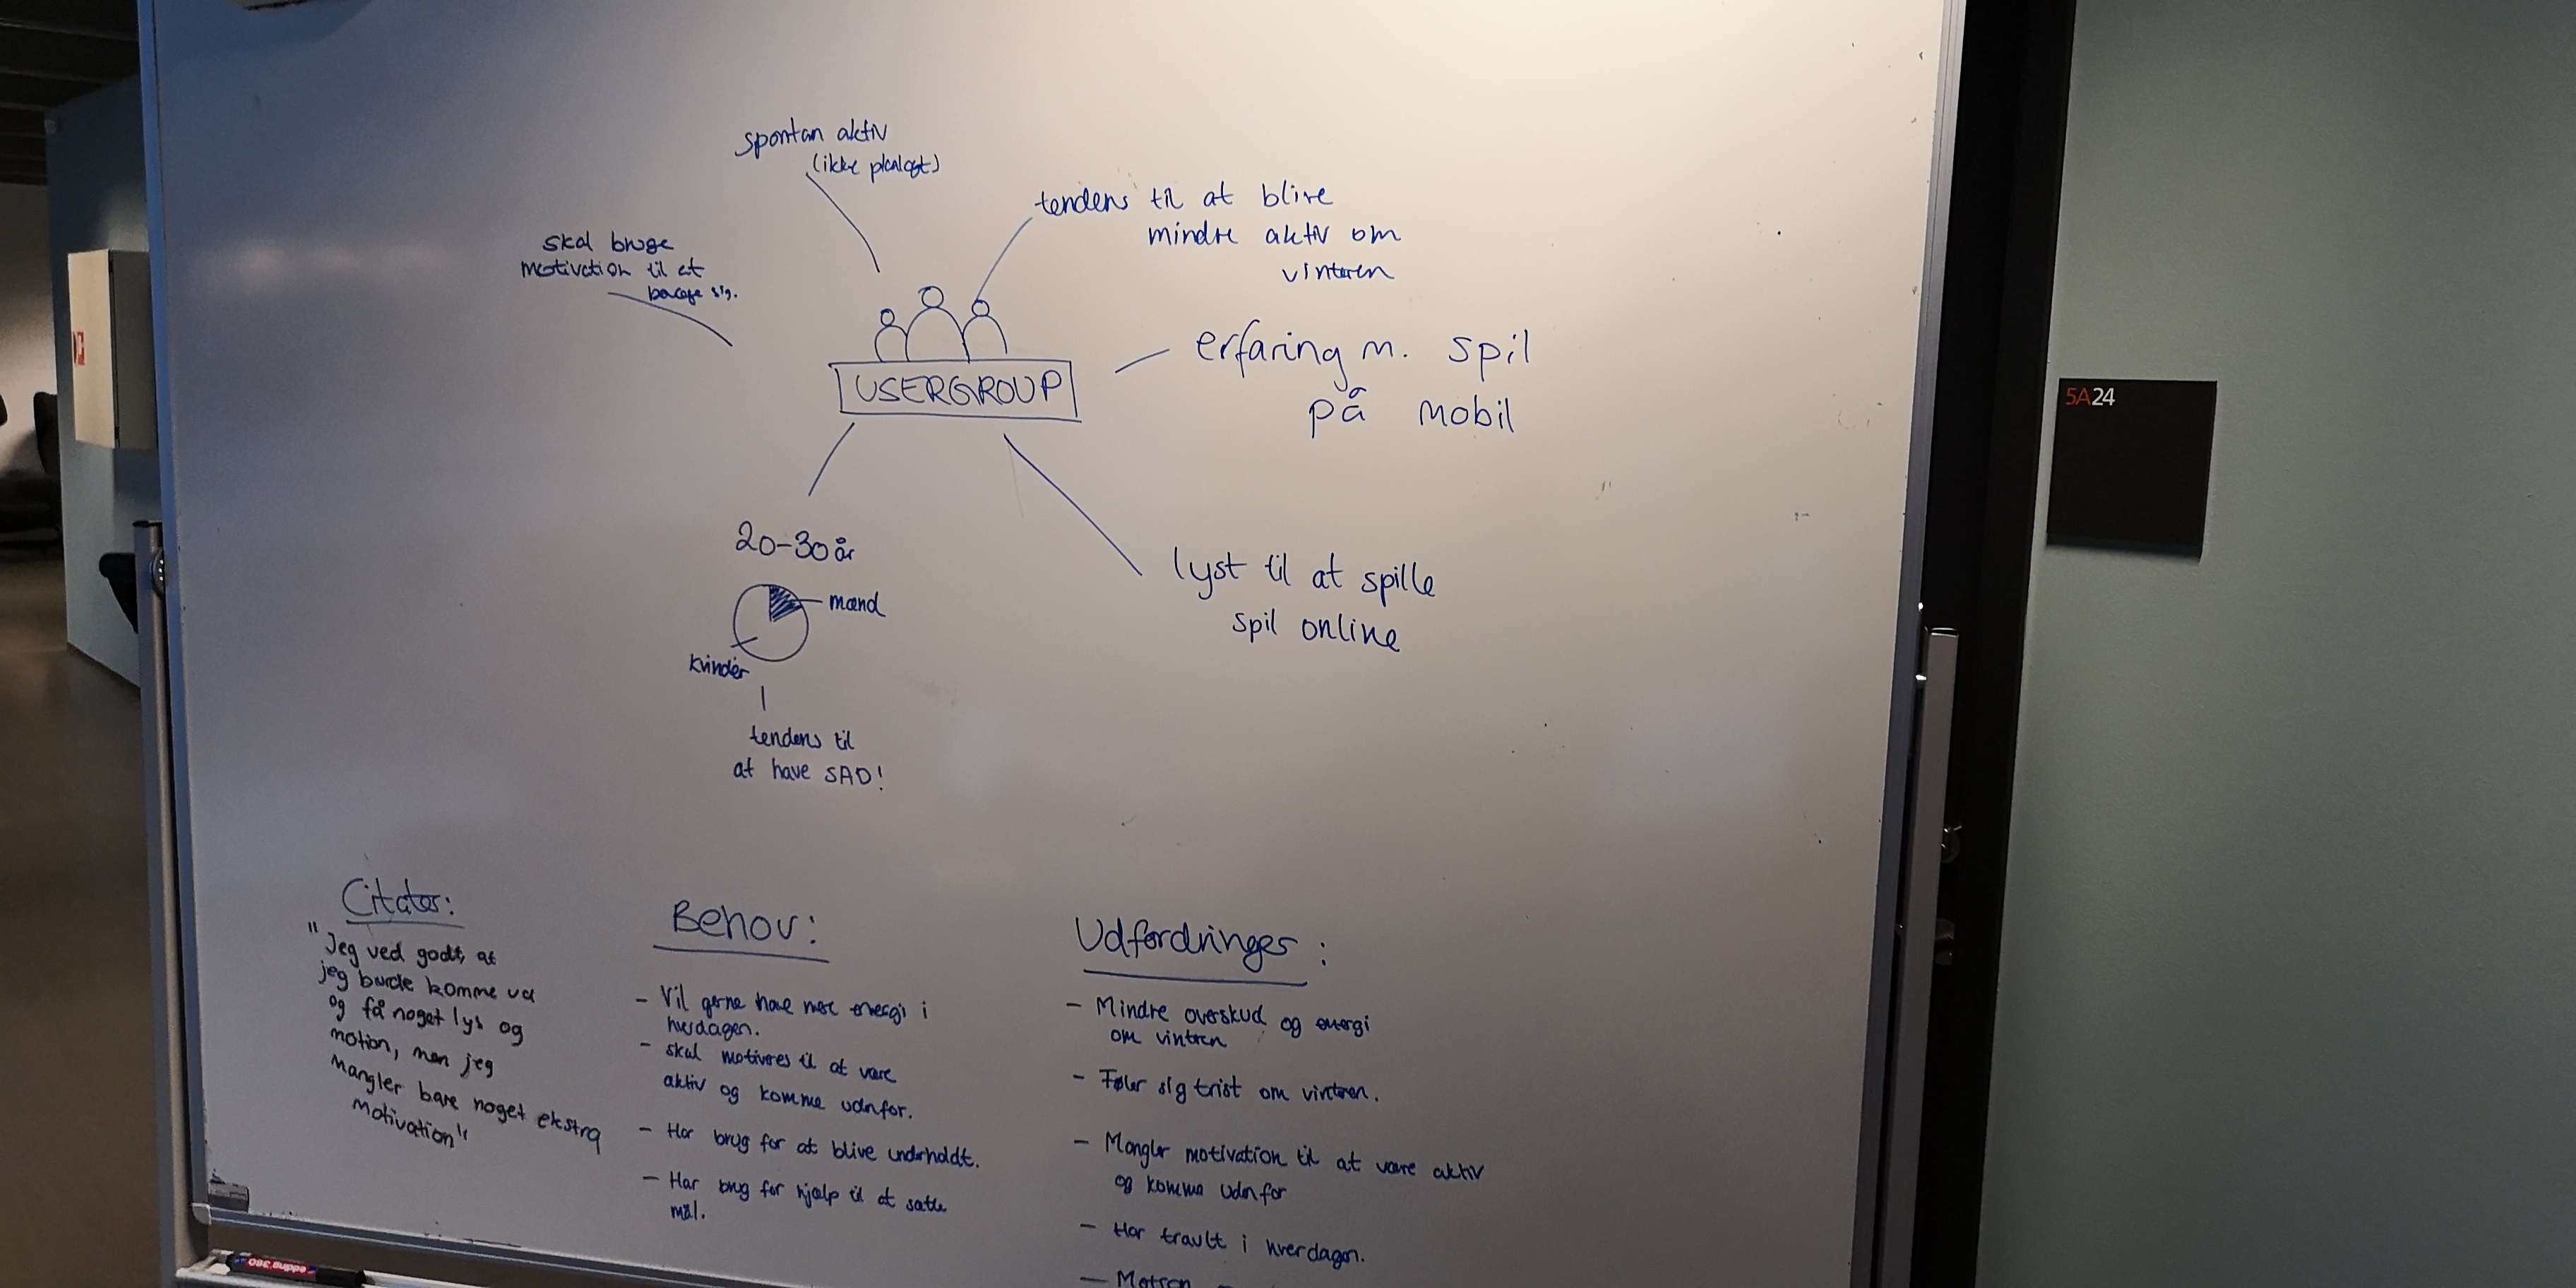 spontan aktiv
(ikke planlagt)
tendens til at blive
mindre aktiv om
vinteren
skal bruge
motivation til at
bevæge sig.
erfaring m. spil
på mobil
USERGROUP
5A24
20-30 år
mænd
kvinder
tendens til
at have SAD!
lyst til at spille
spil online
Citater:
"Jeg ved godt, at
jeg burde komme ud
og få noget lys og
motion, men jeg
mangler bare noget ekstra
motivation"
Behov:
- Vil gerne have mere energi i
hverdagen.
- skal motiveres til at være
aktiv og komme udenfor.
- Har brug for at blive underholdt.
- Har brug for hjælp til at sætte
mål.
Udfordringer:
- Mindre overskud og energi
om vintren
- Føler sig trist om vinteren.
- Mangler motivation til at være aktiv
og komme udenfor
- Har travlt i hverdagen.
edding 380